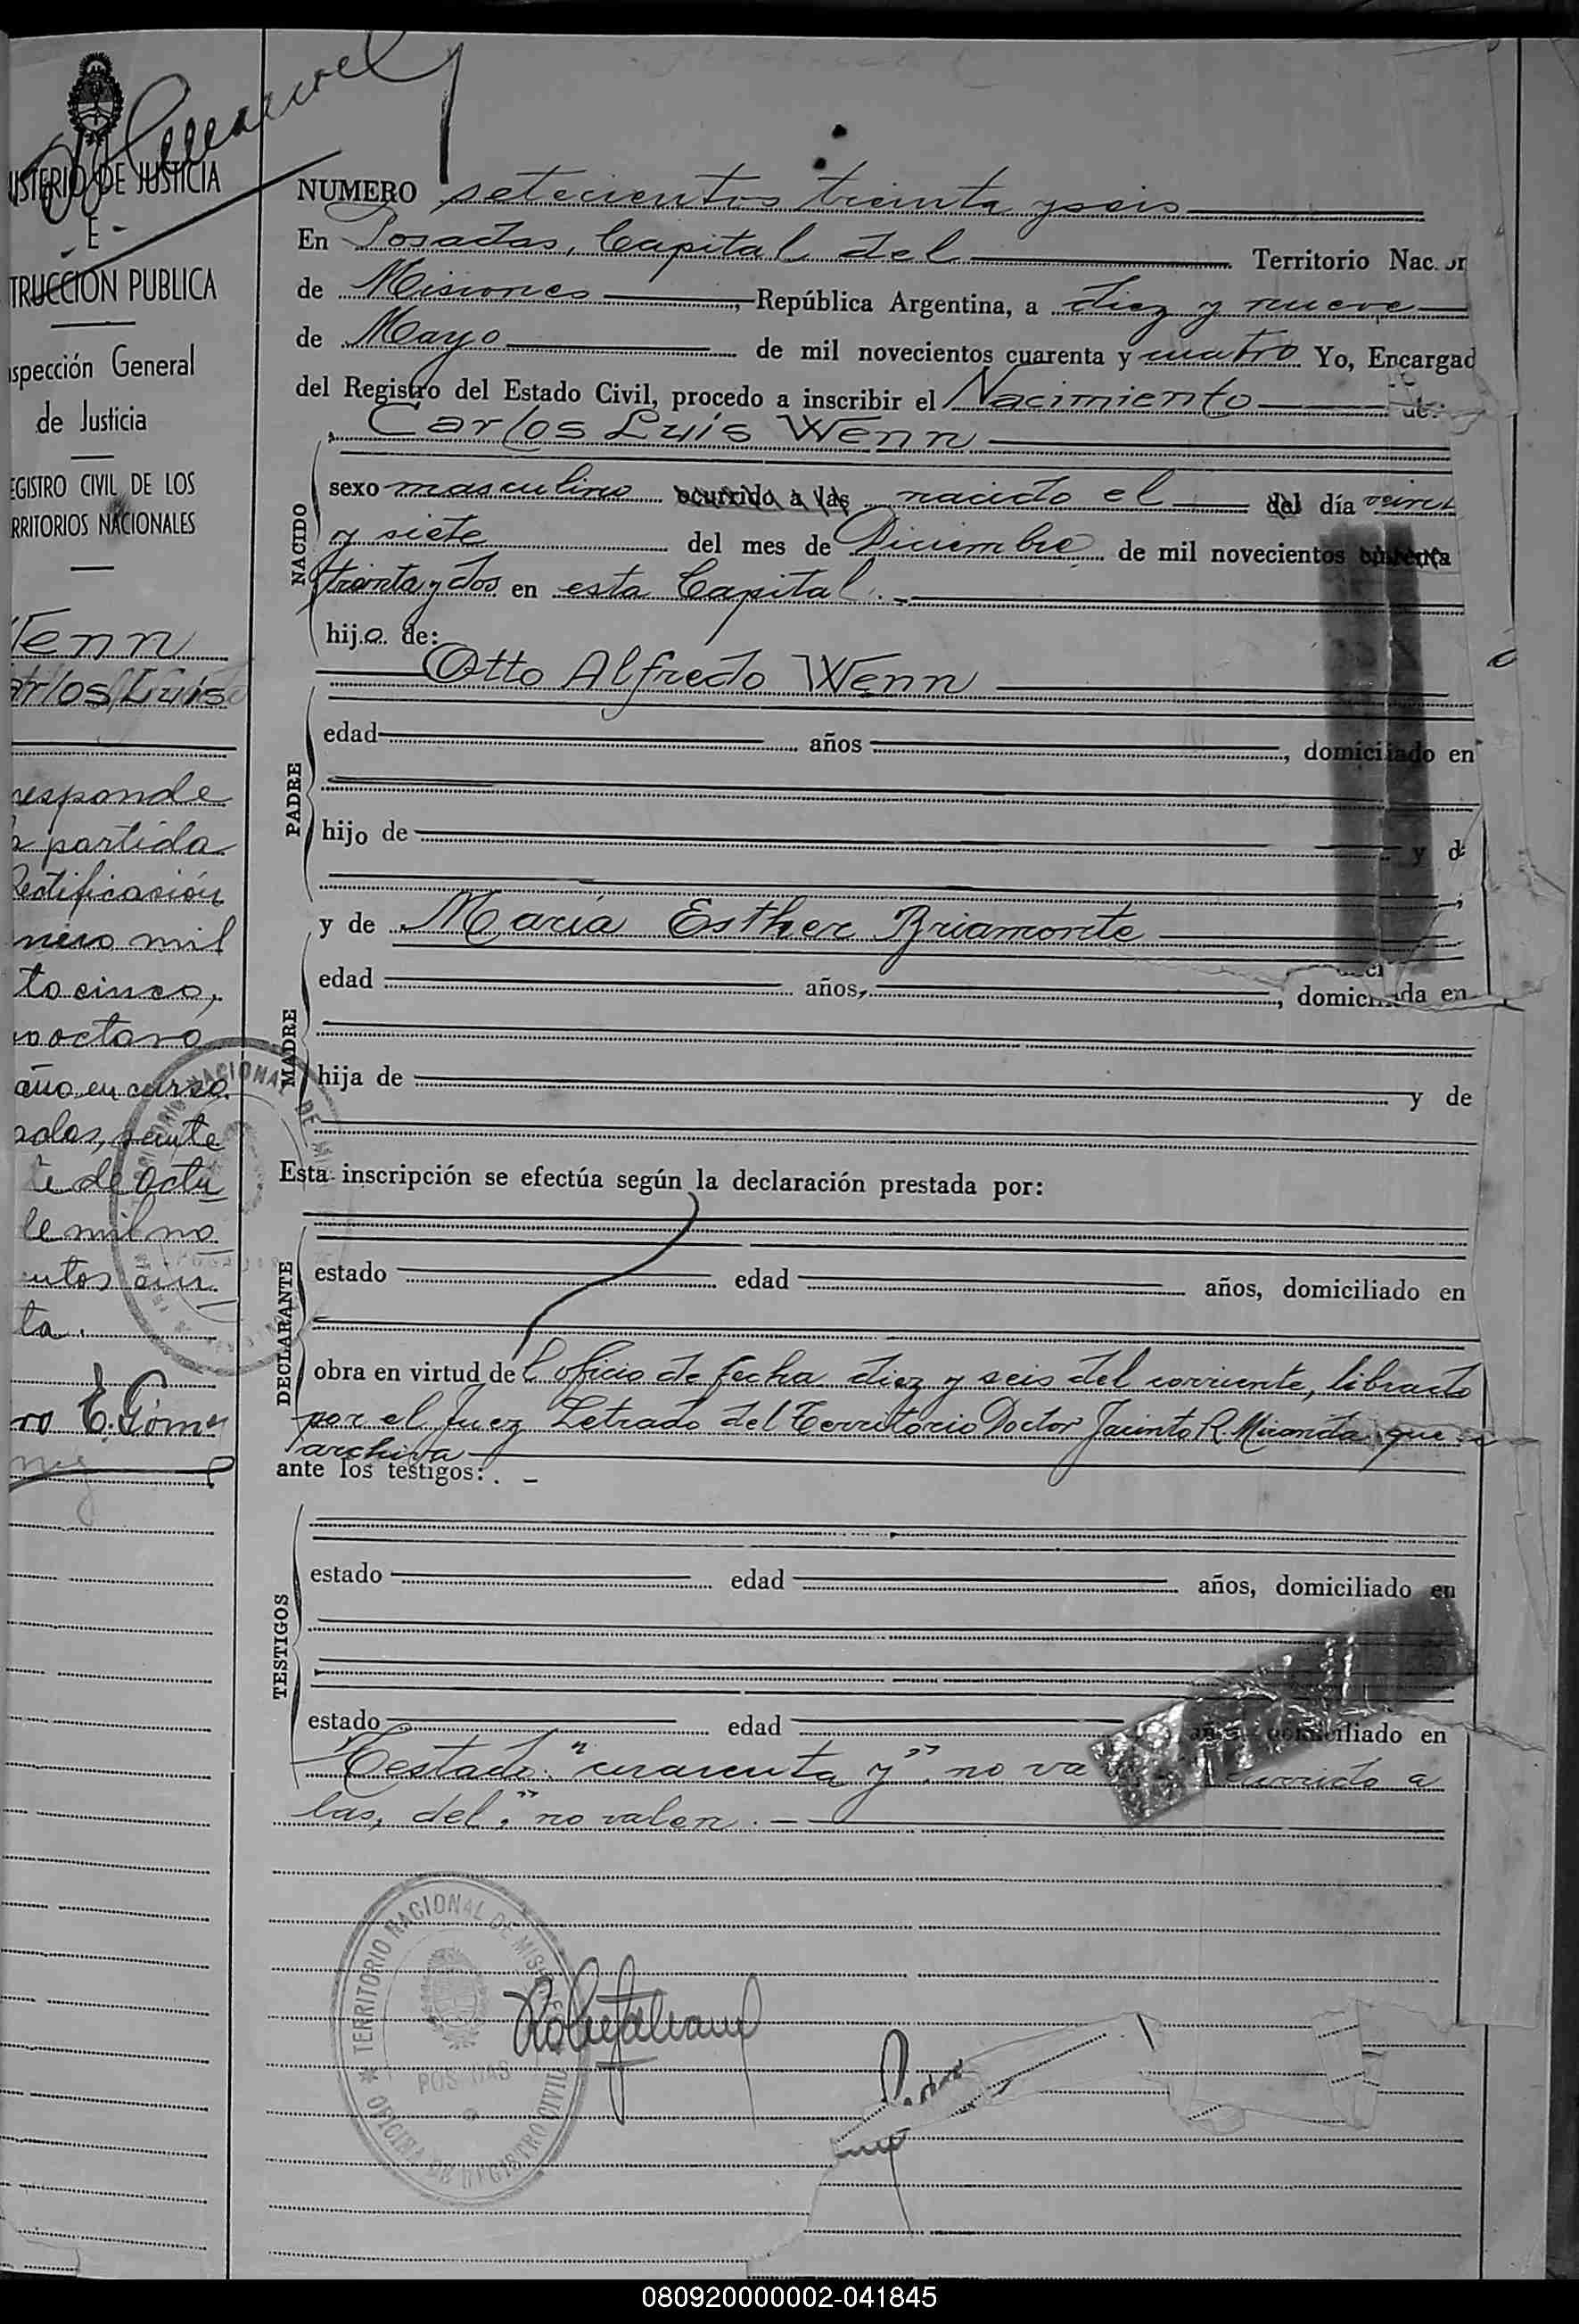 ISTERIO DE JUSTICIA
E
TRUCCION PUBLICA
spección General
de Justicia
EGISTRO CIVIL DE LOS
RRITORIOS NACIONALES
Wenn
arlos Luis
responde
partida
Rectificación
mero mil
to cinco,
octavo
año en curso
de octu
de mil no
entos
ta.
ro E. Gómez
NUMERO setecientos treinta y seis
En Posadas, Capital del Territorio Nac
de Misiones, República Argentina, a diez y nueve
de Mayo de mil novecientos cuarenta y cuatro Yo, Encargad
del Registro del Estado Civil, procedo a inscribir el Nacimiento de:
Carlos Luis Wenn
NACIDO
sexo masculino ocurrido a las nacido el del día veinte
y siete del mes de Diciembre de mil novecientos cuarenta
treinta y dos en esta Capital.-
hijo de:
Otto Alfredo Wenn
PADRE
edad años, domiciliado en
hijo de y d
y de María Esther Briamonte
MADRE
edad años, domiciliada en
hija de y de
Esta inscripción se efectúa según la declaración prestada por:
DECLARANTE
estado edad años, domiciliado en
obra en virtud del oficio de fecha diez y seis del corriente, librado
por el Juez Letrado del Territorio Doctor Jacinto R. Miranda que se
archiva
ante los testigos: . -
TESTIGOS
estado edad años, domiciliado en
estado edad años domiciliado en
Testado: "cuarenta y" no va ocurrido a
las, del," no valen. -
TERRITORIO NACIONAL DE MISIONES
POSADAS
OFICINA DE REGISTRO CIVIL
080920000002-041845